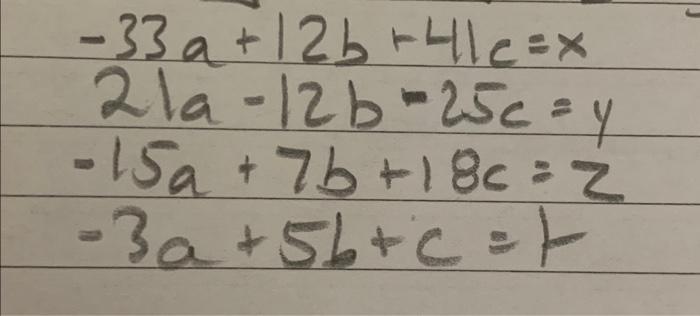 -33a + 12b + 41c = x
21a - 12b - 25c = y
-15a + 7b + 18c = z
-3a + 5b + c = t